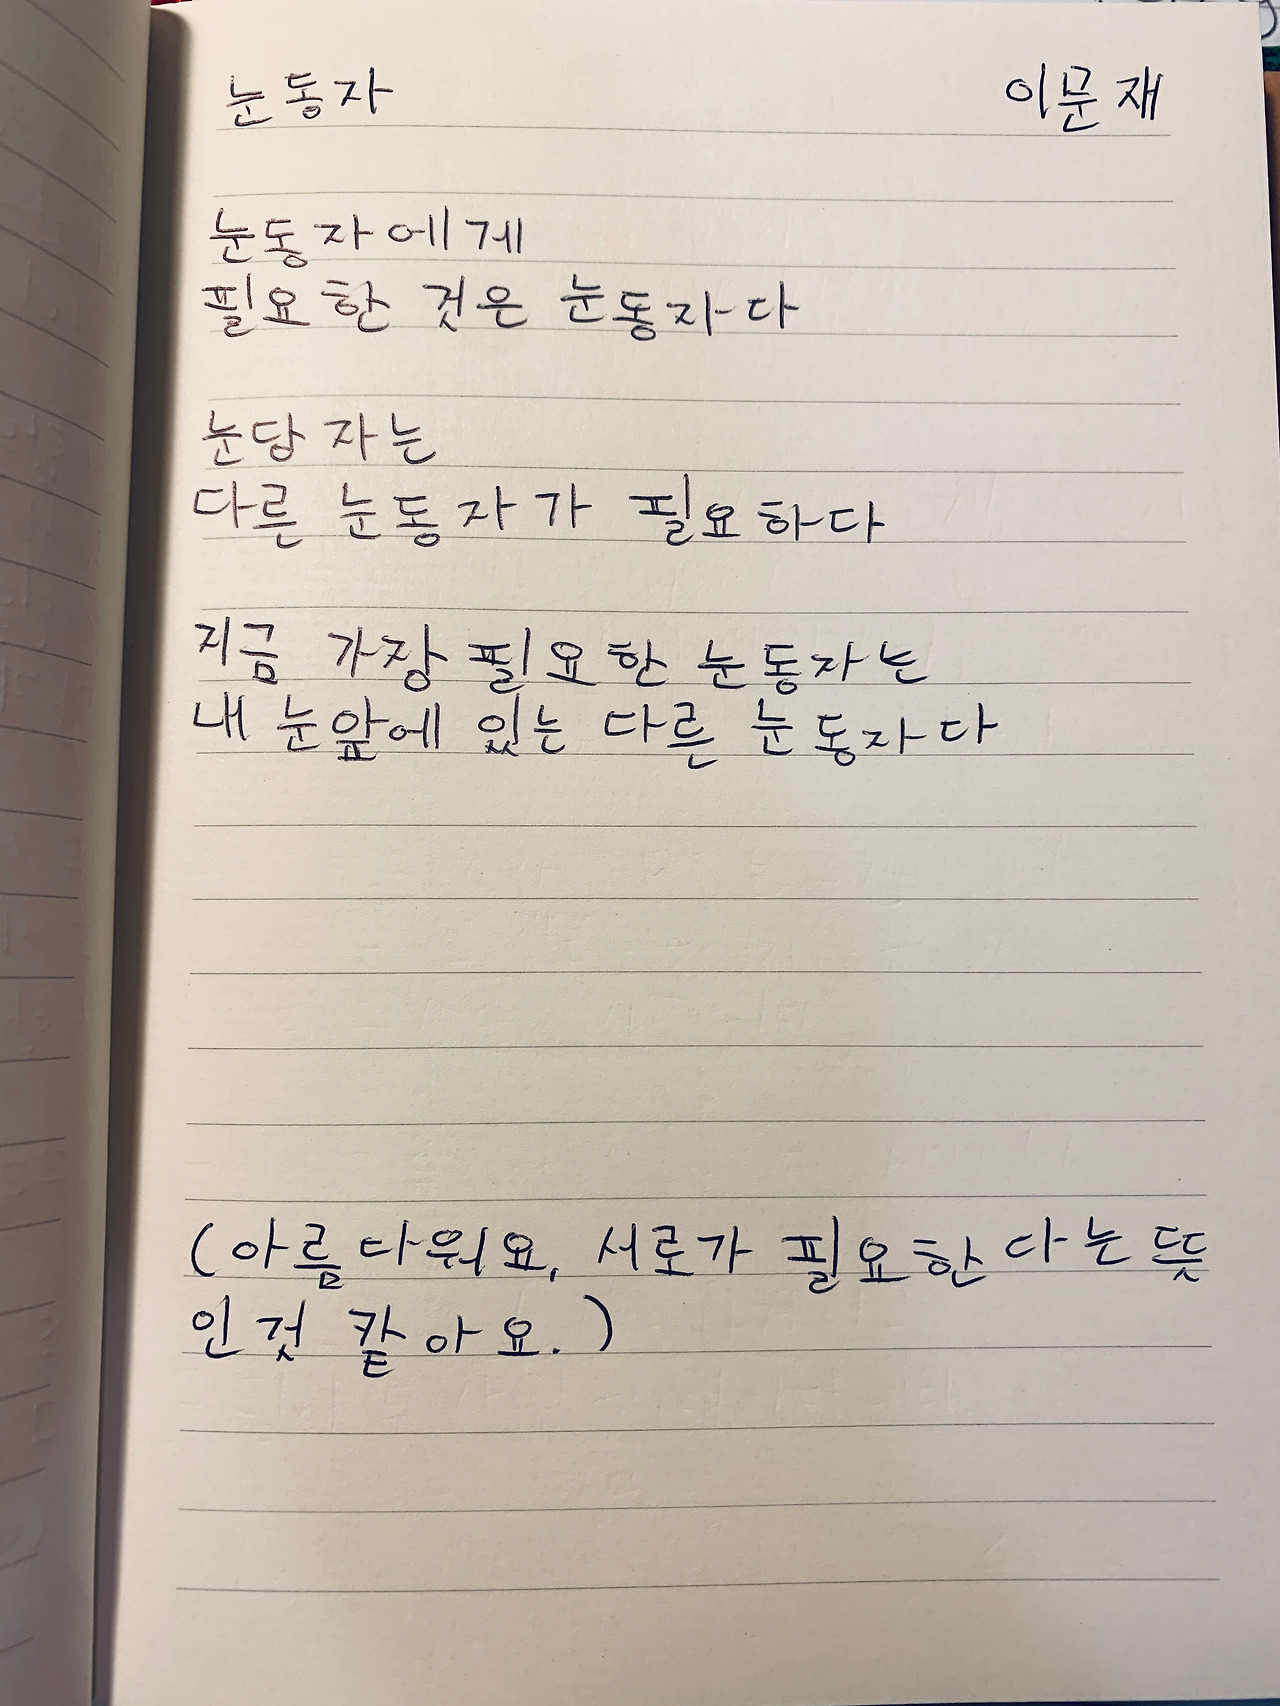 눈동자 이문재
눈동자에게
필요한 것은 눈동자다
눈당자는
다른 눈동자가 필요하다
지금 가장 필요한 눈동자는
내 눈앞에 있는 다른 눈동자다
(아름다워요, 서로가 필요한다는 뜻
인것 같아요.)